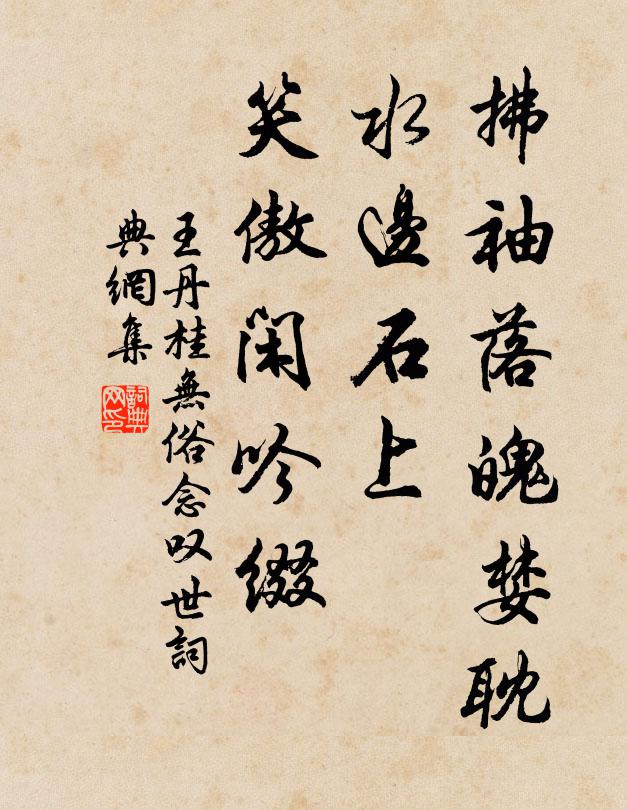 拂袖落魄婪耽
水邊石上
笑傲閑吟綴
王丹桂無俗念叹世詞
典網集
詞典
网印